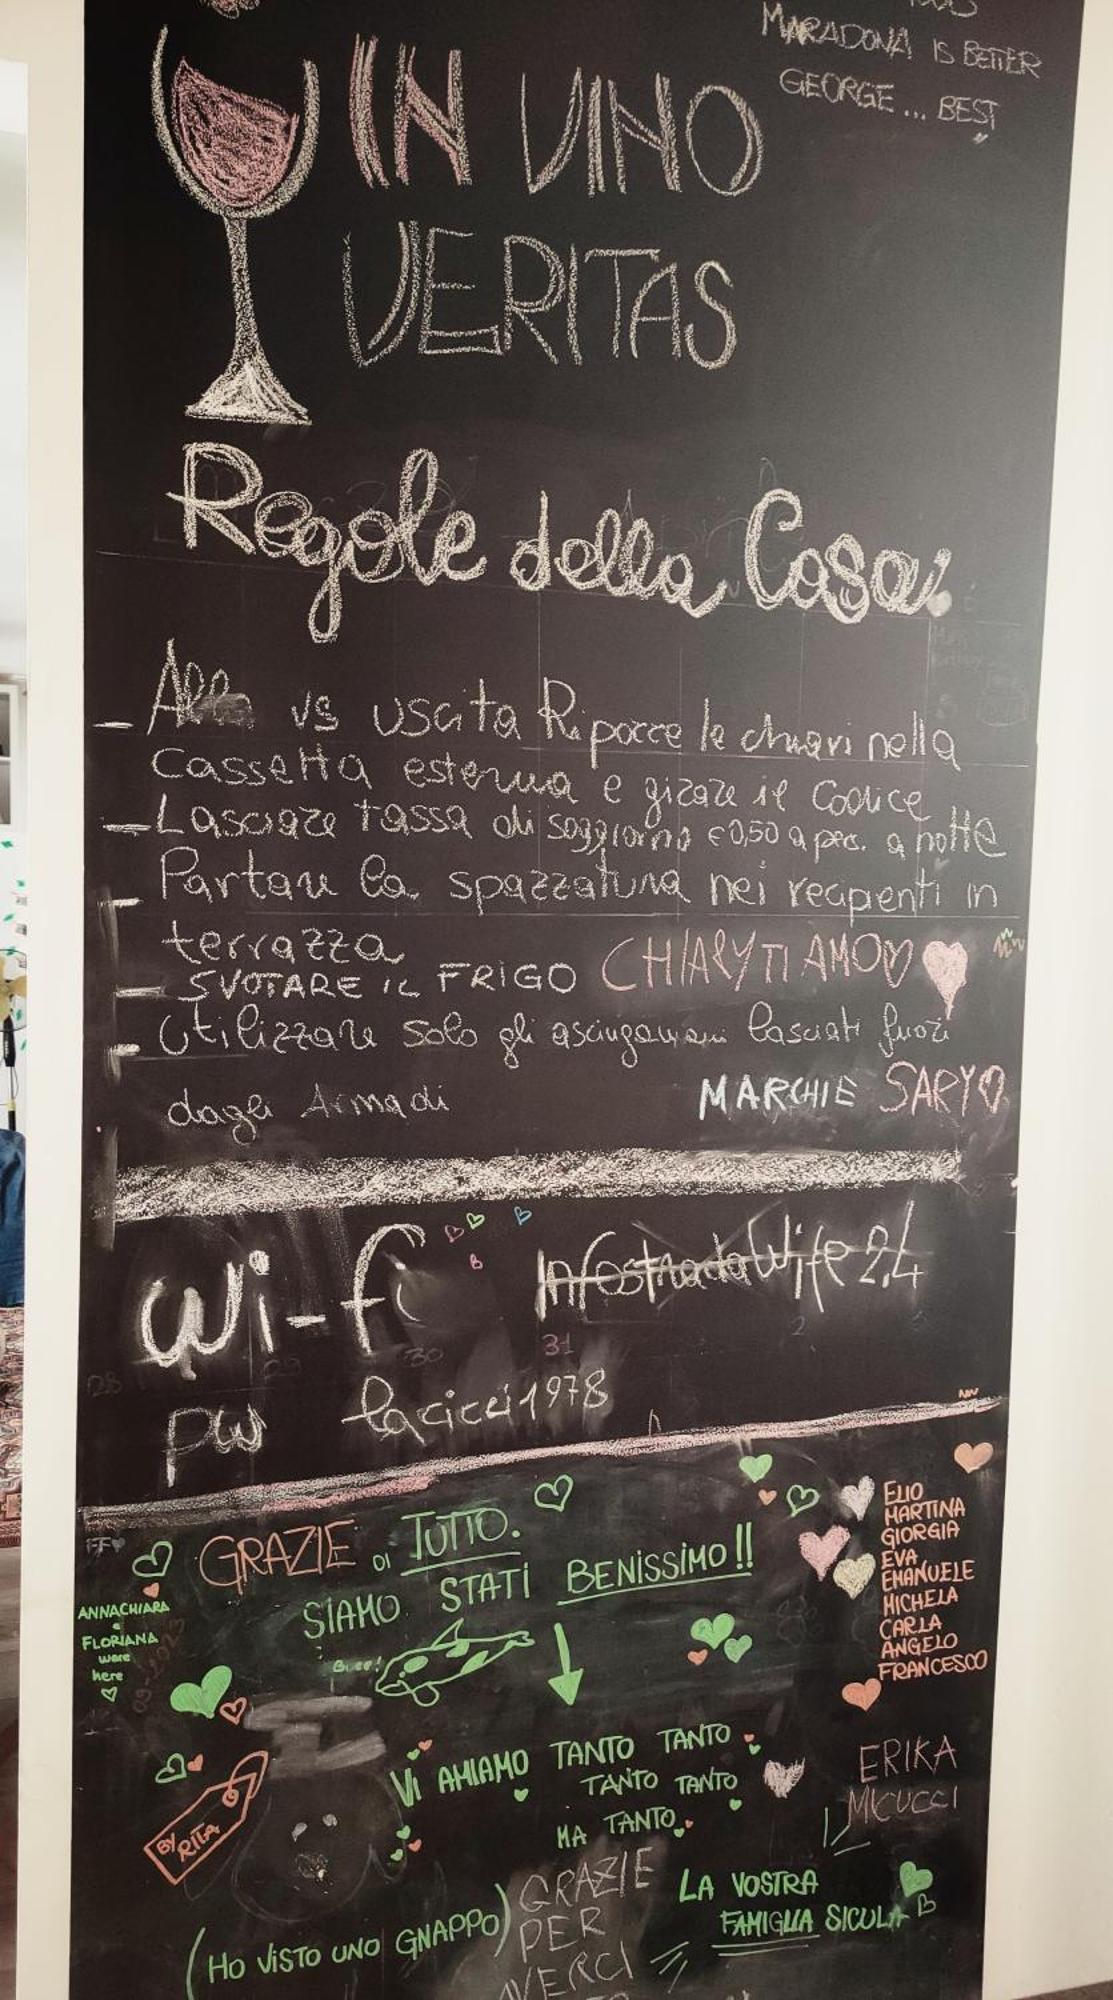 MARADONA IS BETTER
GEORGE ... BEST
IN VINO
VERITAS
Regole della Casa
- Alla vs uscita Riporre le chiavi nella
cassetta esterna e girare il codice
- Lasciare tassa di soggiorno €0,50 a pers. a notte
- Portare la spazzatura nei recipienti in
terrazza
CHIARY TI AMO
- SVOTARE IL FRIGO
- Utilizzare solo gli asciugamani lasciati fuori
dagli Armadi
MARCHIE SARY
Wi-fi InfostradaWife 2,4
28 29 30 31 2 3
pw lacicci1978
GRAZIE DI TUTTO.
SIAMO STATI BENISSIMO!!
ELIO
MARTINA
GIORGIA
EVA
EMANUELE
MICHELA
CARLA
ANGELO
FRANCESCO
FF
ANNACHIARA
e
FLORIANA
were
here
VI AMIAMO TANTO TANTO
TANTO TANTO
MA TANTO
BY RITA
ERIKA
MICUCCI
GRAZIE
PER
AVERCI
LA VOSTRA
FAMIGLIA SICULA
(HO VISTO UNO GNAPPO)